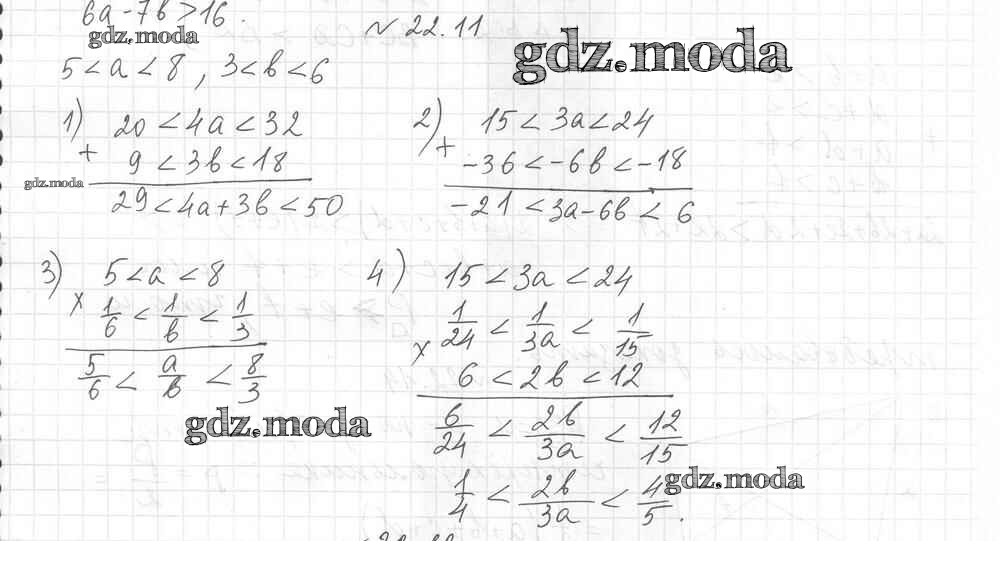 6a-7b>16.
№ 22.11
gdz.moda
gdz.moda
5<a<8, 3<b<6
1) 20<4a<32
+ 9<3b<18
gdz.moda
29<4a+3b<50
2) 15<3a<24
+ -36<-6b<-18
-21<3a-6b<6
3) 5<a<8
x 1/6 < 1/b < 1/3
5/6 < a/b < 8/3
gdz.moda
4) 15<3a<24
1/24 < 1/3a < 1/15
x 6<2b<12
6/24 < 2b/3a < 12/15
gdz.moda
1/4 < 2b/3a < 4/5.